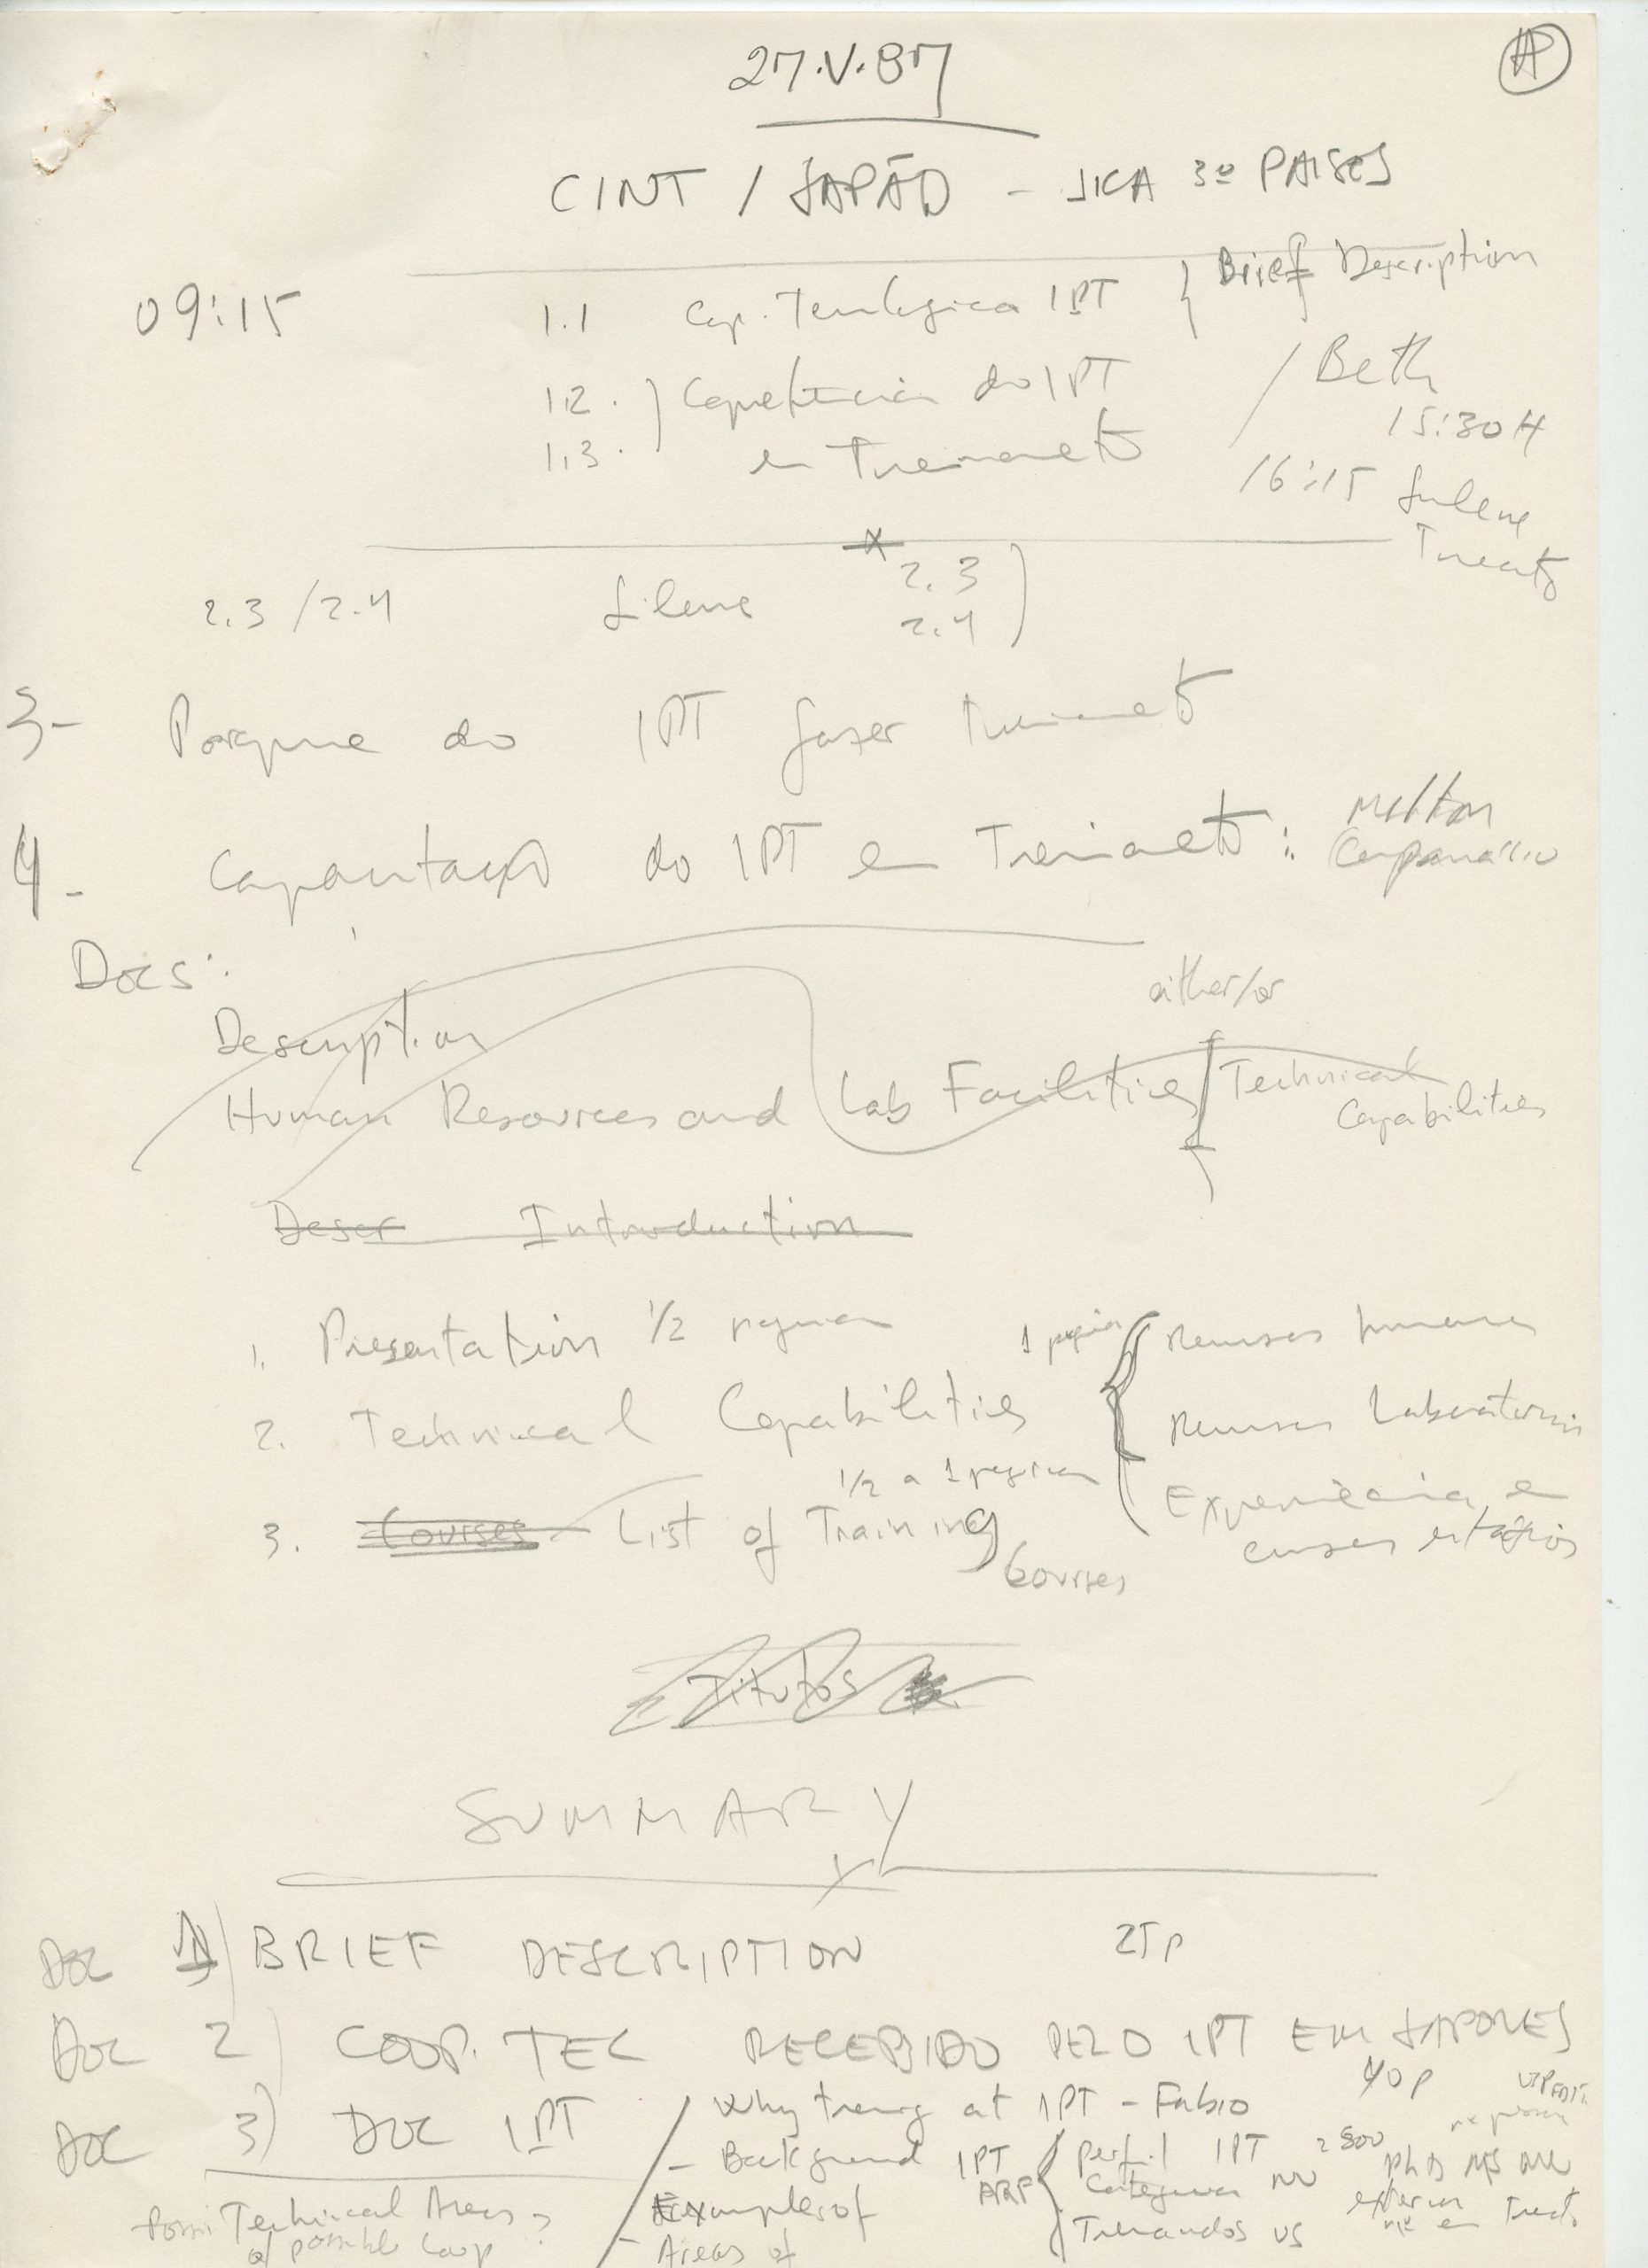 27.V.87
CINT / JAPÃO - JICA 3º PAISES
09:15
1.1 Cap. Tecnlogica IPT } Brief Description
1.2. ) Capacitacion do IPT / Beth
1.3. em Treinamento 15:30H
16:15 Silene
2.3 / 2.4 Silene 2.3
2.4
3- Porque do IPT fazer treinamento
4- Capacitação do IPT em Treinamento: Milton
Campanario
Docs:
Description either/or
Human Resources and Lab Facilities Technical
Capabilities
Descr Introduction
1. Presentation 1/2 pagina
2. Technical Capabilities 1 pagina { Recursos humanos
Recursos Laboratoriais
1/2 a 1 pagina
Experiência em
3. Courses List of Training
Courses
cursos estagios
Titulos
SUMMARY
DOC 1) BRIEF DESCRIPTION
DOC 2) COOP. TEC RECEBIDO PELO IPT EM JAPONES
DOC 3) DOC IPT
- Why treing at IPT - Fabio
- Background IPT
perfil IPT
PhD MS
Examples of
Treinandos US
Technical Areas
of possible Coop
- Areas of